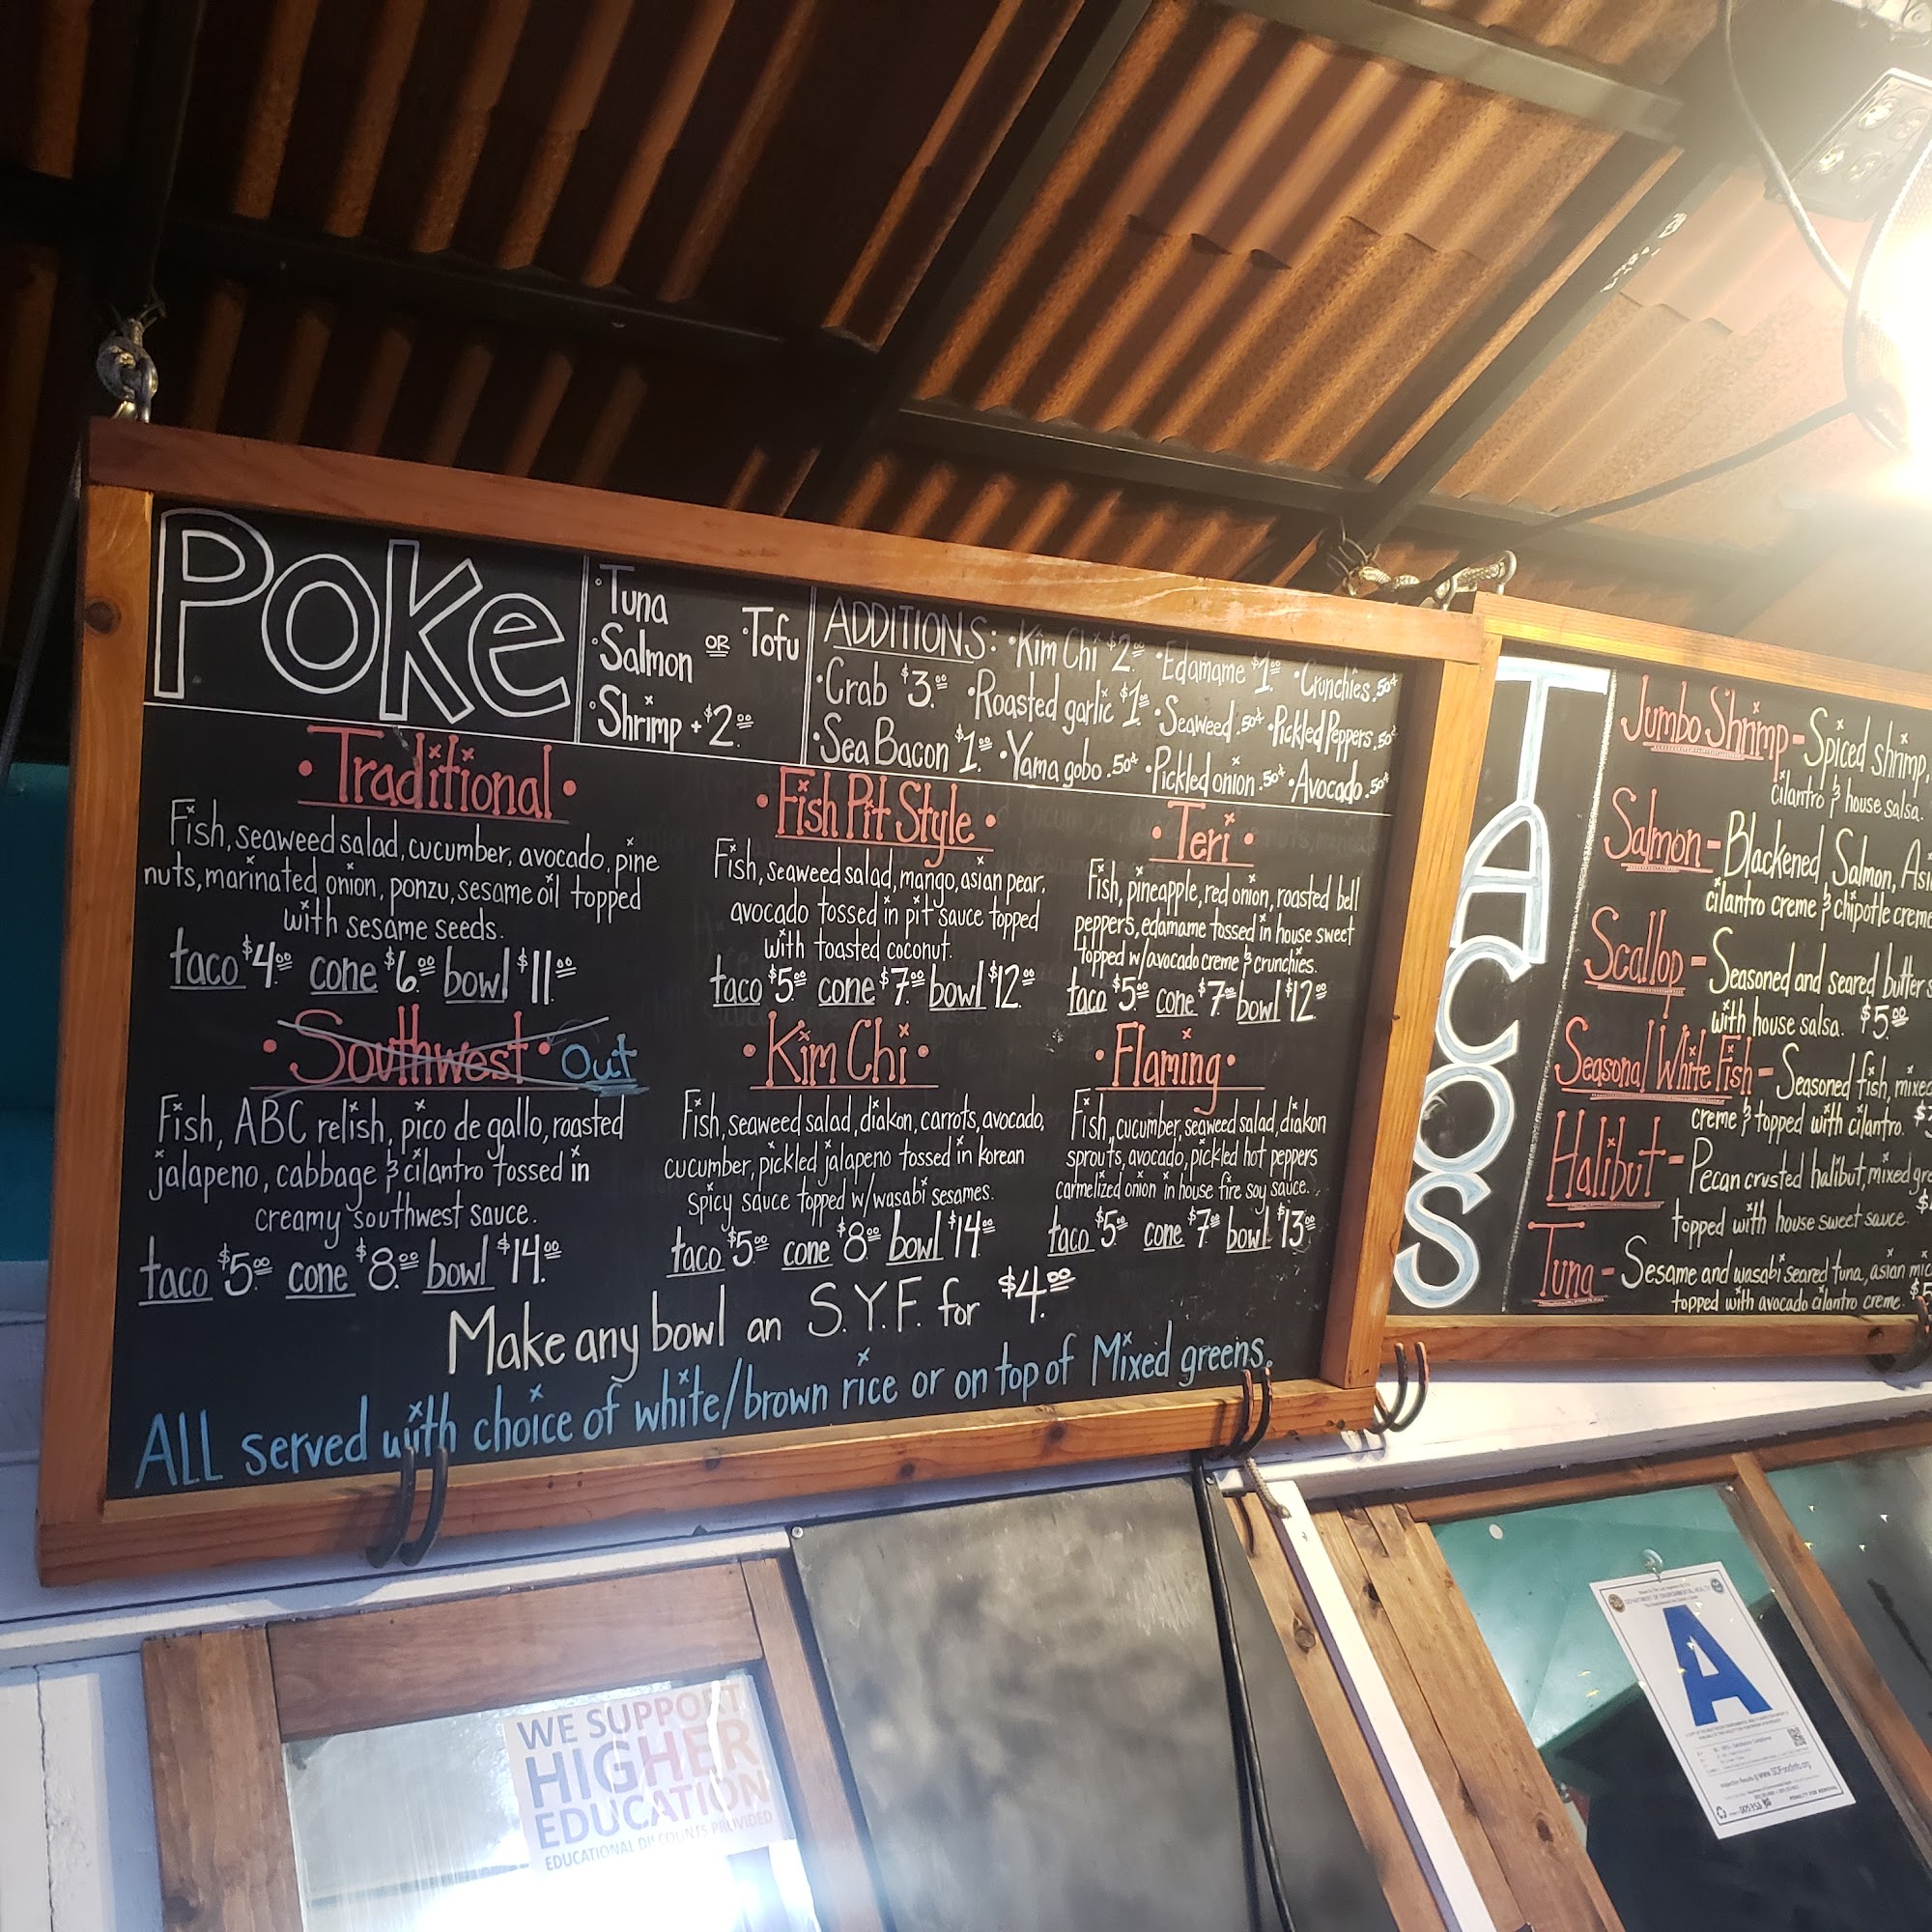 POKe
·Tuna
·Salmon OR ·Tofu
·Shrimp +$2.00
ADDITIONS: ·Kim Chi $2.00 ·Edamame $1.00 ·Crunchies .50¢
·Crab $3.00 ·Roasted garlic $1.00 ·Seaweed .50¢ ·Pickled Peppers .50¢
·Sea Bacon $1.00 ·Yama gobo .50¢ ·Pickled onion .50¢ ·Avocado .50¢
·Traditional·
Fish, seaweed salad, cucumber, avocado, pine
nuts, marinated onion, ponzu, sesame oil topped
with sesame seeds.
taco $4.00 cone $6.00 bowl $11.00
·Fish Pit Style·
Fish, seaweed salad, mango, asian pear,
avocado tossed in pit sauce topped
with toasted coconut.
taco $5.00 cone $7.00 bowl $12.00
·Teri·
Fish, pineapple, red onion, roasted bell
peppers, edamame tossed in house sweet
topped w/avocado creme & crunchies.
taco $5.00 cone $7.00 bowl $12.00
·Southwest· Out
Fish, ABC relish, pico de gallo, roasted
jalapeno, cabbage & cilantro tossed in
creamy southwest sauce.
taco $5.00 cone $8.00 bowl $14.00
·Kim Chi·
Fish, seaweed salad, diakon, carrots, avocado,
cucumber, pickled jalapeno tossed in korean
spicy sauce topped w/wasabi sesames.
taco $5.00 cone $8.00 bowl $14.00
·Flaming·
Fish, cucumber, seaweed salad, diakon
sprouts, avocado, pickled hot peppers
carmelized onion in house fire soy sauce.
taco $5.00 cone $7.00 bowl $13.00
Make any bowl an S.Y.F. for $4.00
ALL served with choice of white/brown rice or on top of Mixed greens.
TACOS
Jumbo Shrimp - Spiced shrimp,
cilantro & house salsa.
Salmon - Blackened Salmon,
cilantro creme & chipotle creme
Scallop - Seasoned and seared butter
with house salsa. $5.00
Seasonal White Fish - Seasoned fish, mixed
creme & topped with cilantro.
Halibut - Pecan crusted halibut, mixed
topped with house sweet sauce.
Tuna - Sesame and wasabi seared tuna, asian
topped with avocado cilantro creme.
WE SUPPORT
HIGHER
EDUCATION
EDUCATIONAL DISCOUNTS PROVIDED
DEPARTMENT OF ENVIRONMENTAL HEALTH
A